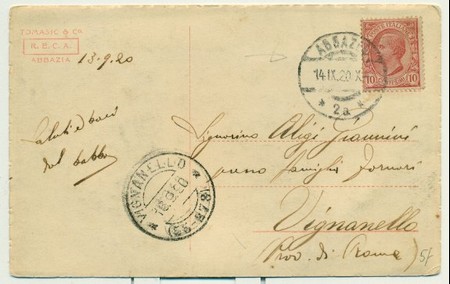 TOMASIC & CO.
R. E. C. A.
ABBAZIA
13-9.20
Saluti e baci
dal babbo
ABBAZIA
14.IX.20.X
* 2a *
10 10
Signorino Aligi Giannini
presso famiglia Fornari
Vignanello
(Prov. di Roma)
57
VIGNANELLO